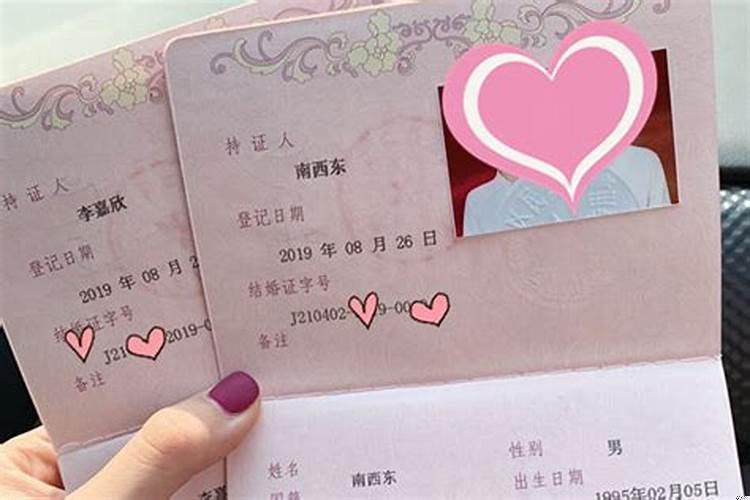 持证人
李嘉欣
登记日期
2019 年 08 月 2
结婚证字号
J21 2019-0
备注
持证人
南西东
登记日期
2019 年 08 月 26 日
结婚证字号
J210402- 9-00
备注
姓名 南西东 性别 男
出生日期 1995年02月05日
李嘉